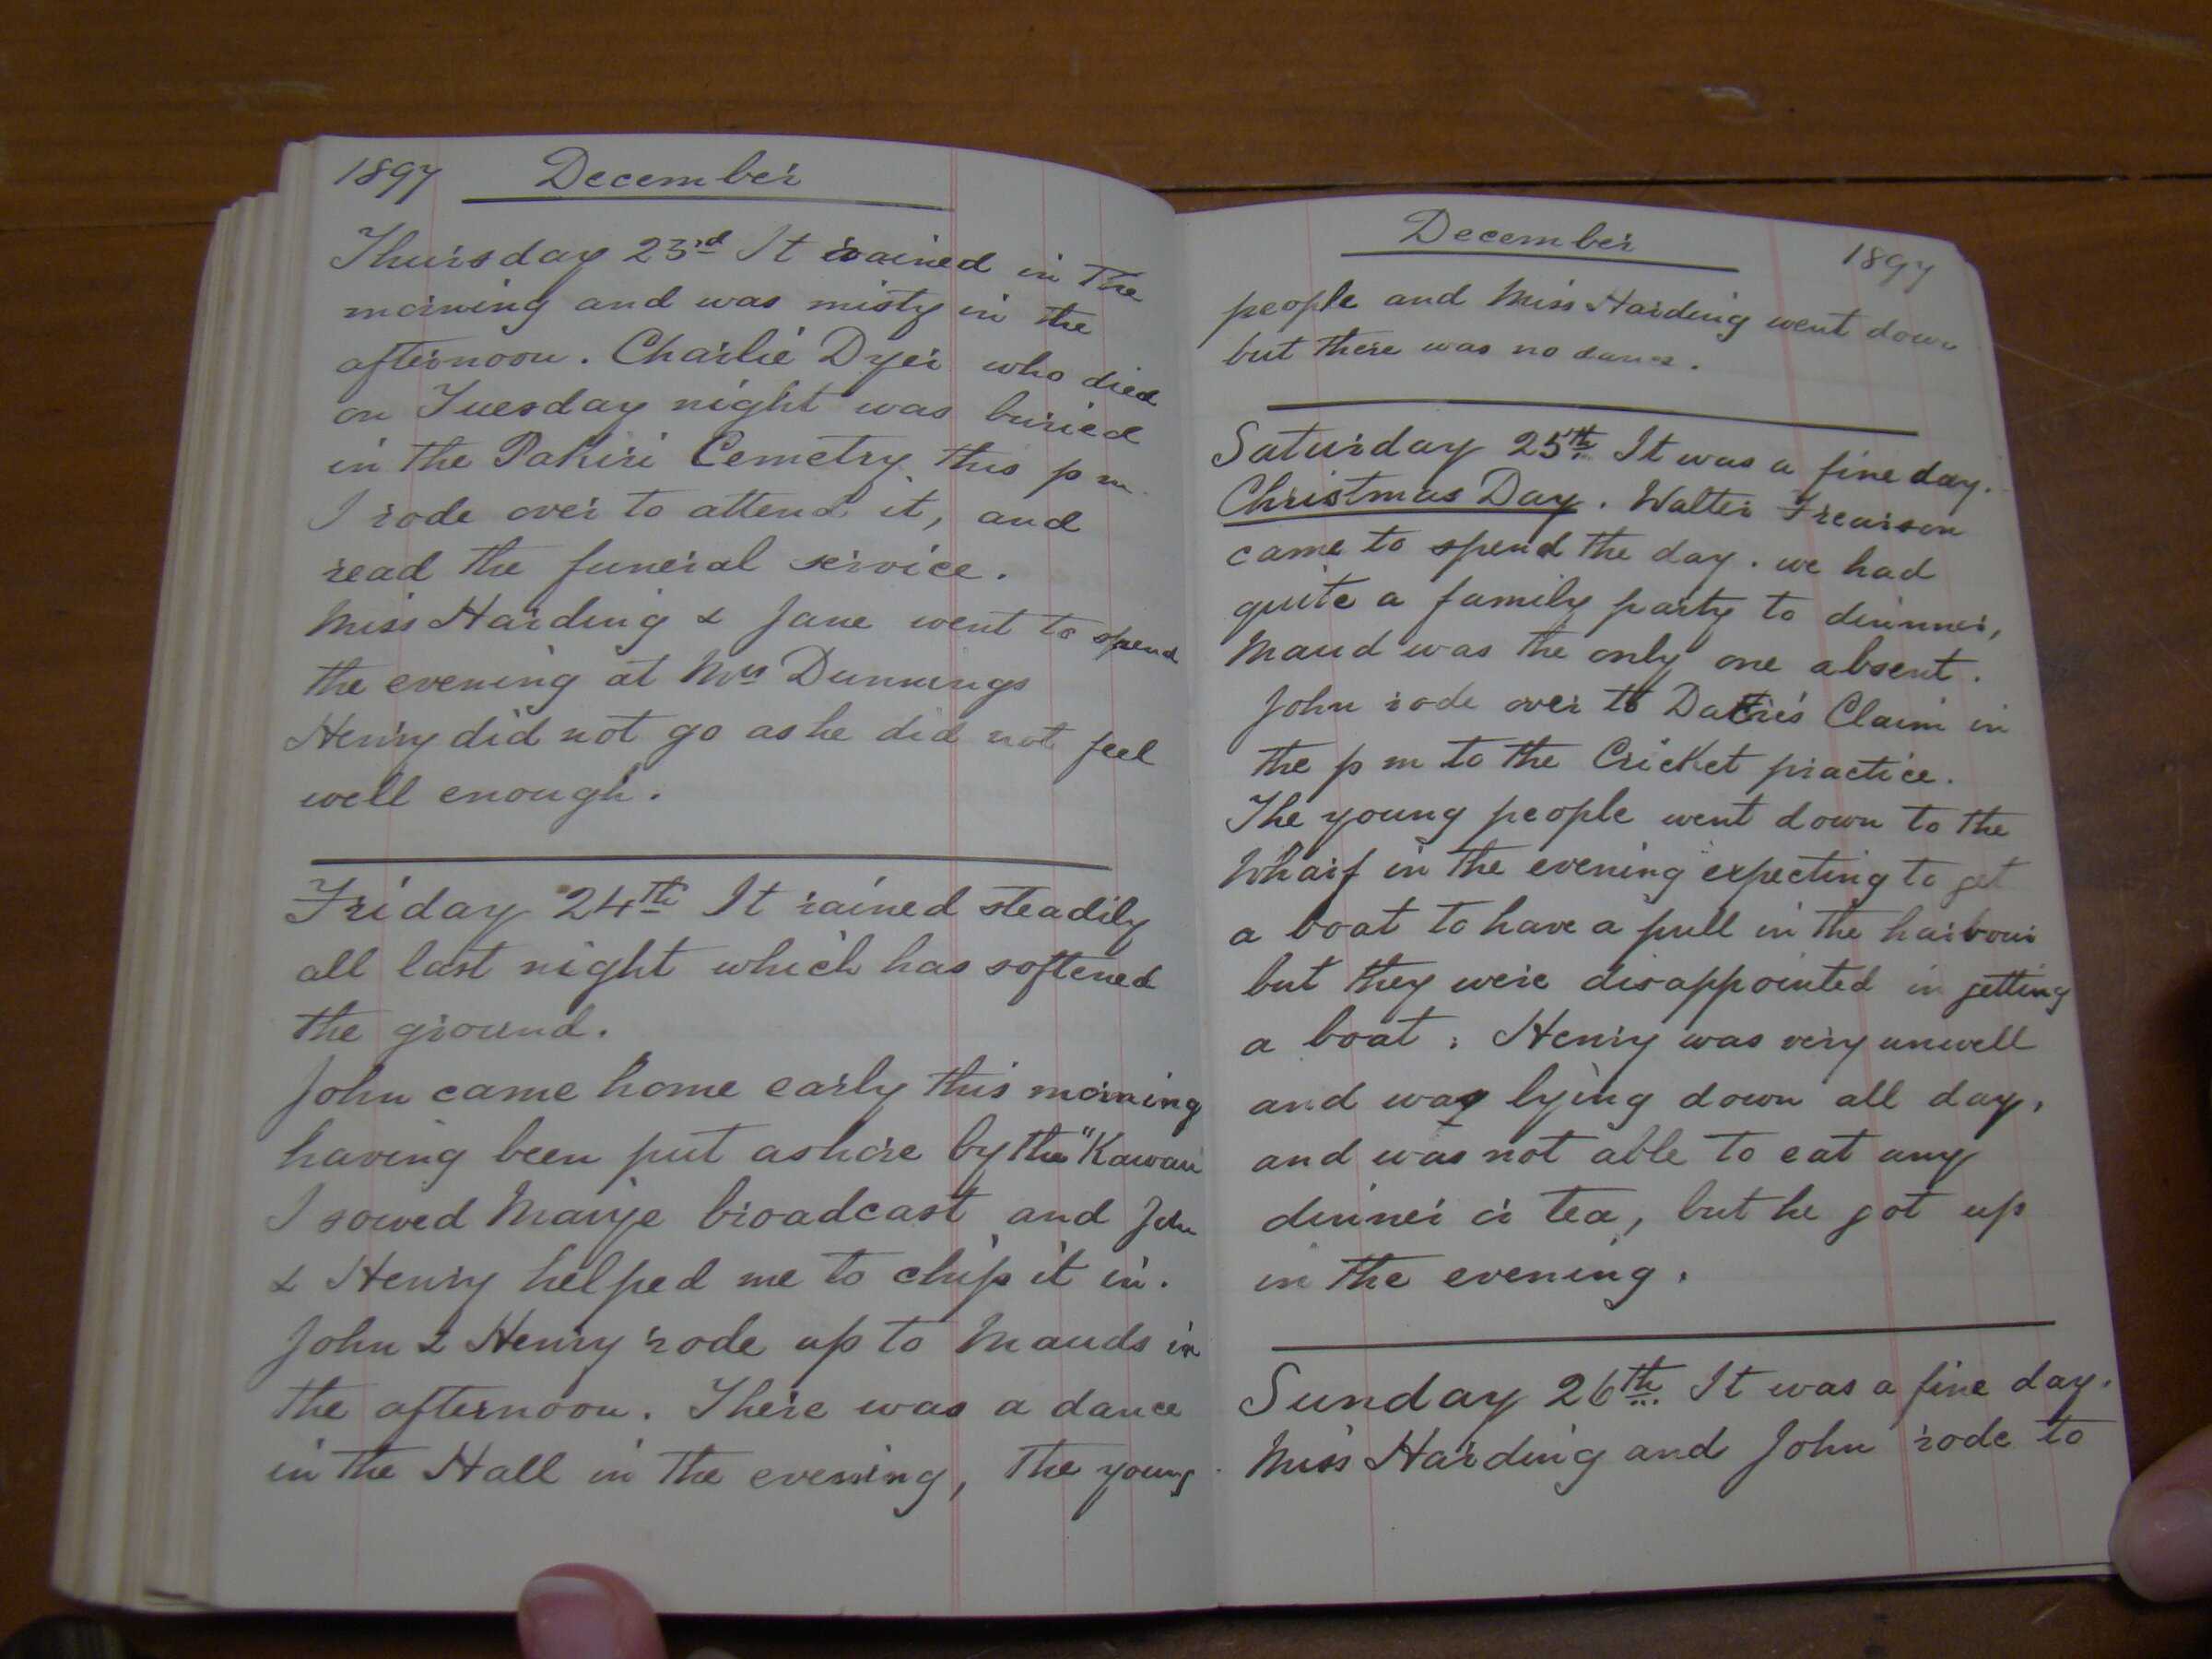 1897 December
Thursday 23rd It rained in the
morning and was misty in the
afternoon. Charlie Dyer who died
on Tuesday night was buried
in the Pakiri Cemetry this p m
I rode over to attend it, and
read the funeral service.
Miss Harding & Jane went to spend
the evening at Mrs Dunnings
Henry did not go as he did not feel
well enough.
Friday 24th It rained steadily
all last night which has softened
the ground.
John came home early this morning
having been put ashore by the "Kawau
I sowed Maize broadcast and John
& Henry helped me to chip it in.
John & Henry rode up to Mauds in
the afternoon. There was a dance
in the Hall in the evening, the young
December 1897
people and Miss Harding went down
but there was no dance.
Saturday 25th It was a fine day.
Christmas Day. Walter Frearson
came to spend the day. we had
quite a family party to dinner,
Maud was the only one absent.
John rode over to Claim in
the p m to the Cricket practice.
The young people went down to the
Wharf in the evening expecting to get
a boat to have a pull in the harbour
but they were disappointed in getting
a boat. Henry was very unwell
and was lying down all day,
and was not able to eat any
dinner or tea, but he got up
in the evening.
Sunday 26th It was a fine day.
Miss Harding and John rode to